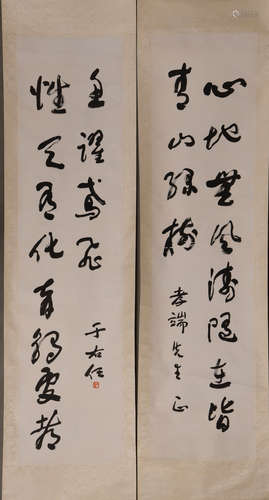 心地無風濤隨在皆
青山綠樹
孝端先生正
性天有化育觸處都
魚躍鳶飛
于右任